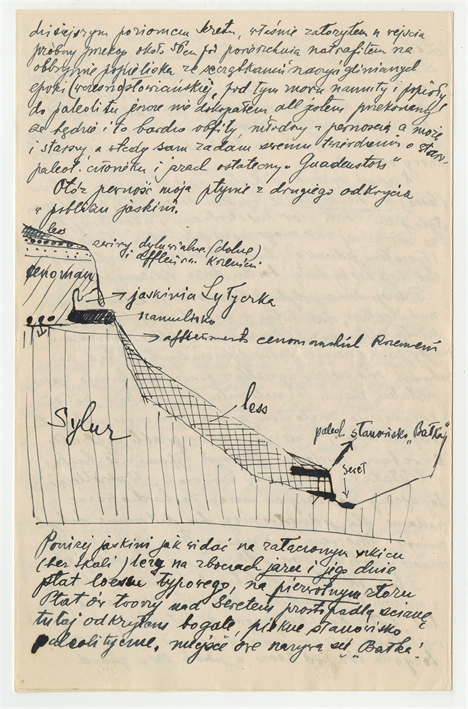 dzisiejszym poziomem Seretu, właśnie założyłem u wejścia
próbny przekop około 50 cm pod powierzchnią natrafiłem na
olbrzymie popielisko ze szczątkami naczyń glinianych
epoki (wczesnosłowiańskiej, pod tym morze namuły i popioły
do paleolitu jeszcze nie dokopałem ale jestem przekonany
że będzie i to bardzo obfity, młodszy z pewnością a może
i starszy a wtedy sam zadam swemu twierdzeniu o star.
paleol. człowieku i przed ostateczny „Gnadenstoss"
Otóż pewność moja płynie z drugiego odkrycia
w pobliżu jaskini.
less
żwiry dyluwialne (dolne)
z offleur. krzemieni.
cenoman
→ jaskinia Lytyorka
namulisko
→ affleurement cenomańskich krzemieni
Sylur
less
paleol. stanowisko „Batka"
Seret
Poniżej jaskini jak widać na załączonym szkicu
(bez skali) leżą na zboczach jaru i jego dnie
płat loessu typowego, na pierwotnym złożu
Płat ów tworzy nad Seretem prostopadłą ścianę
tutaj odkryłem bogate, piękne stanowisko
paleolityczne, miejsce ów nazywa się „Batka".